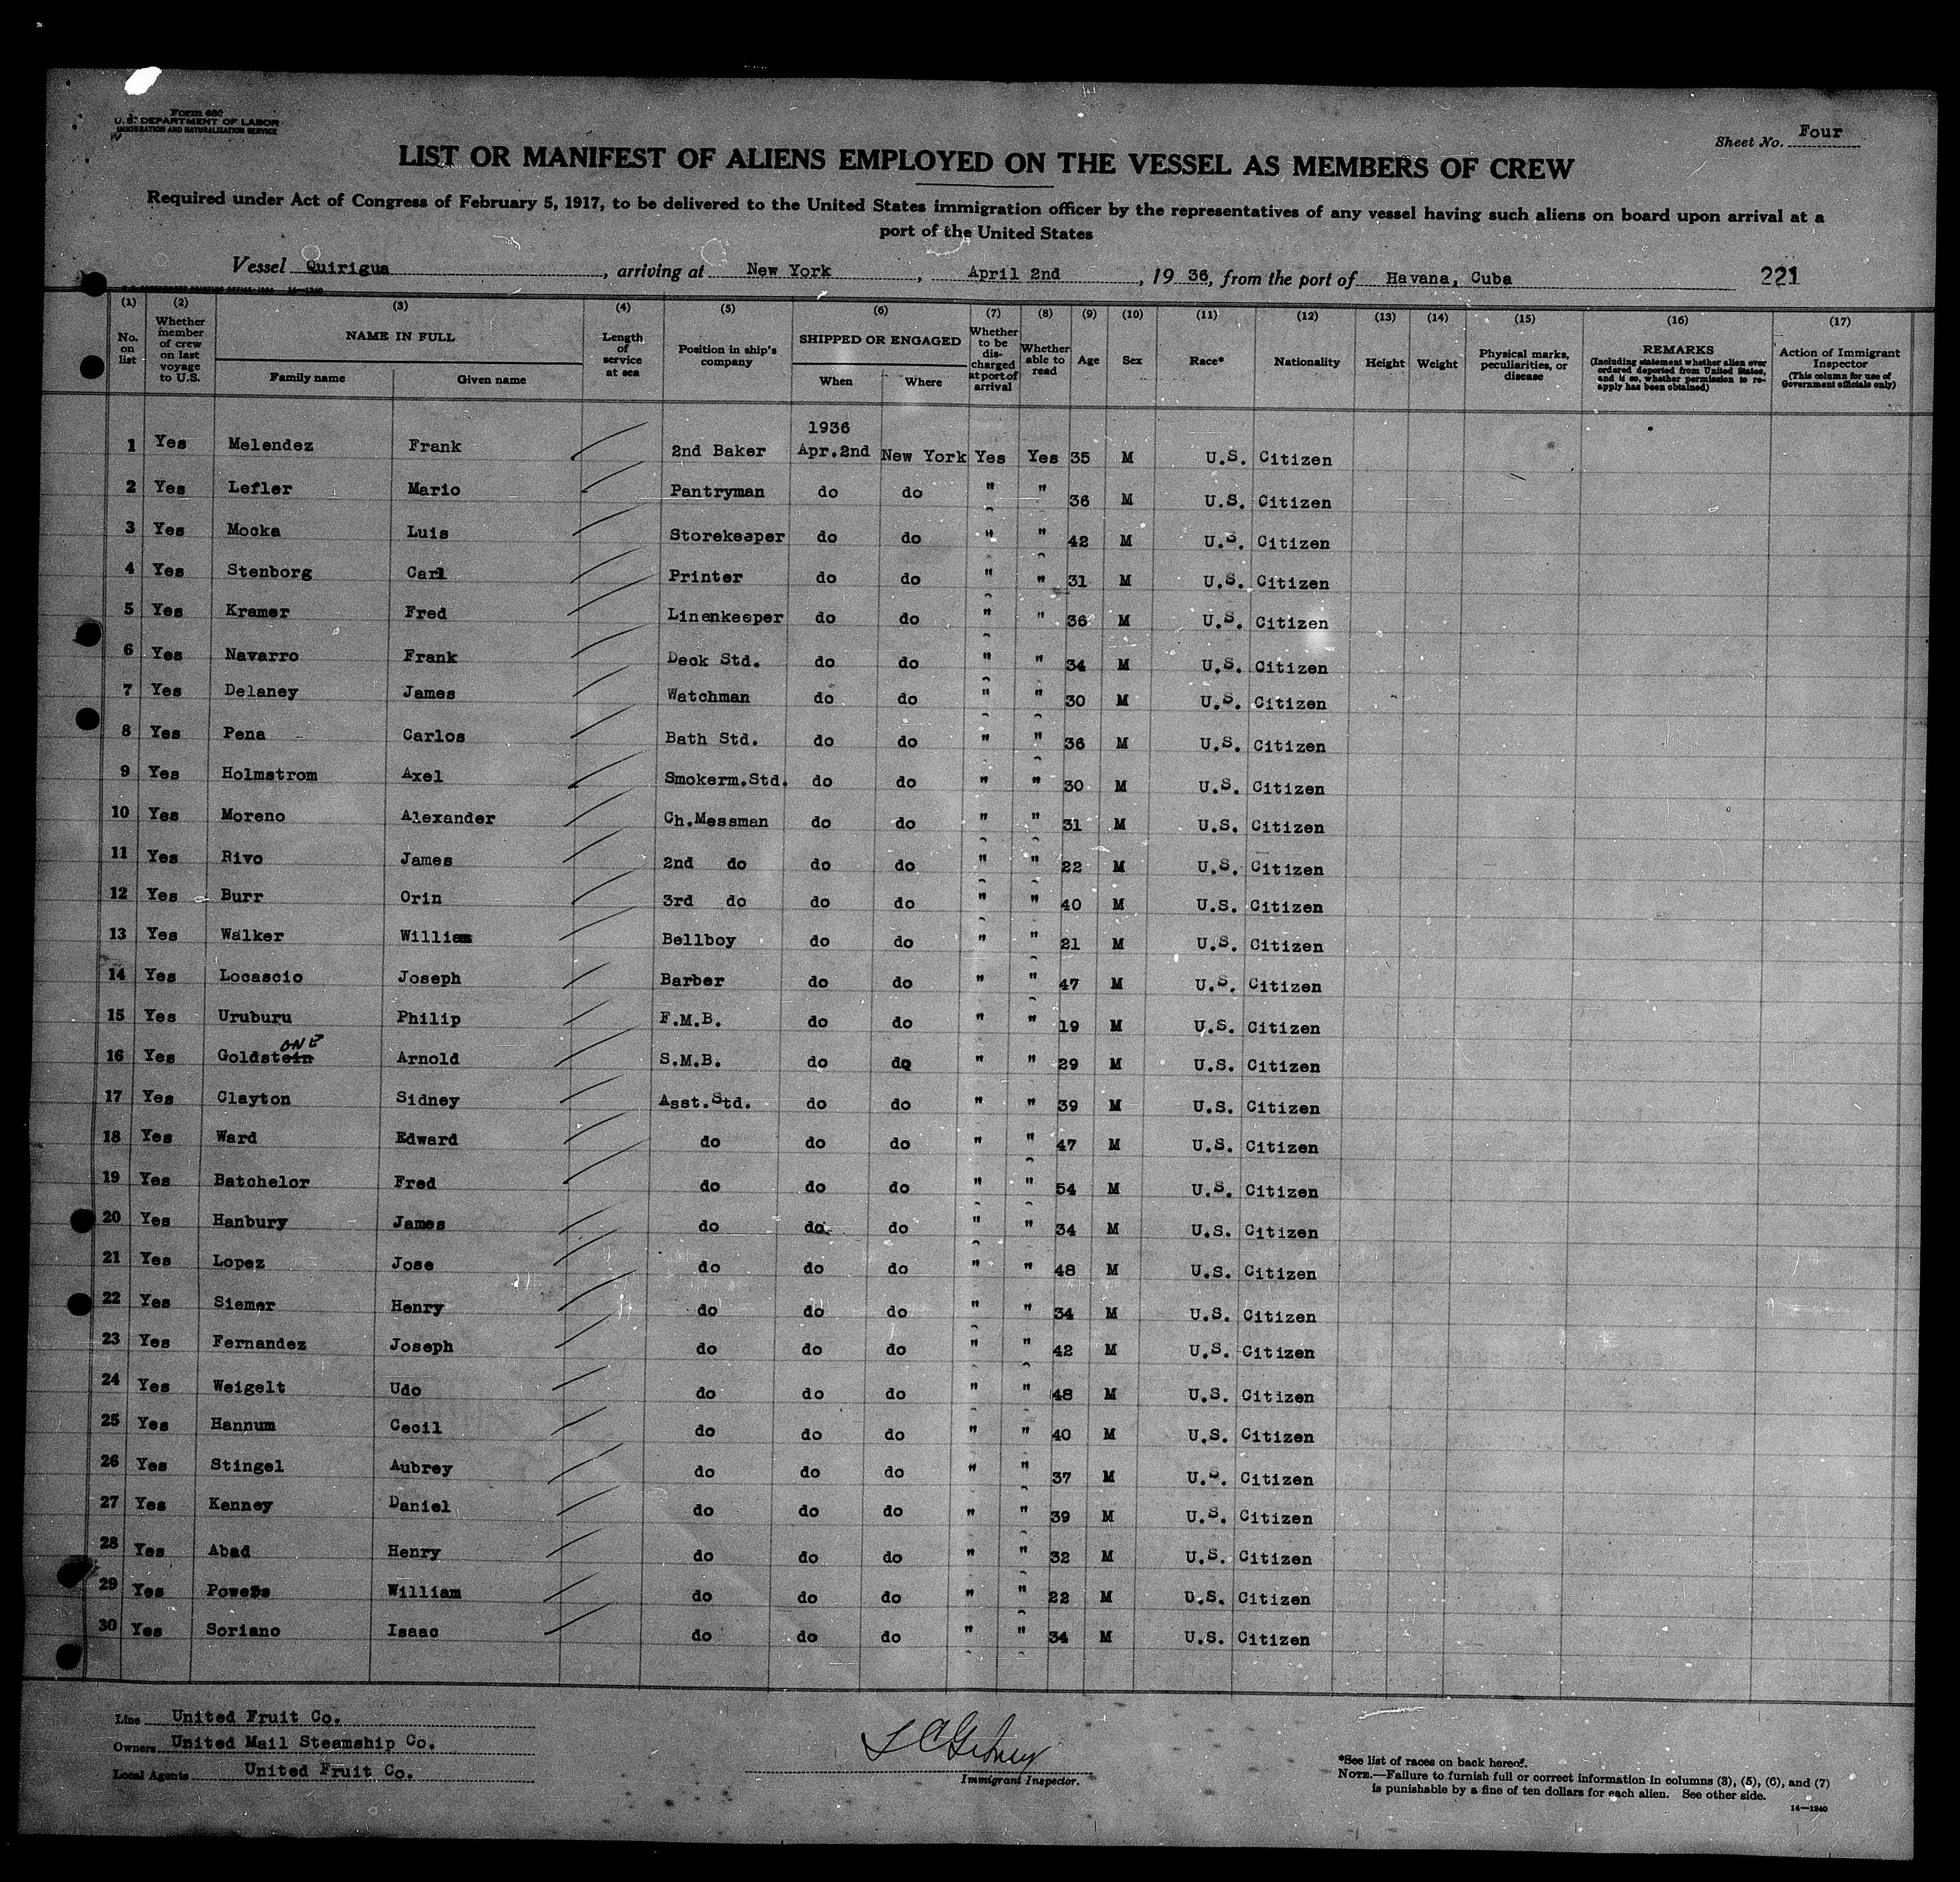 Form 680
U. S. DEPARTMENT OF LABOR
IMMIGRATION AND NATURALIZATION SERVICE
Sheet No. Four
LIST OR MANIFEST OF ALIENS EMPLOYED ON THE VESSEL AS MEMBERS OF CREW
Required under Act of Congress of February 5, 1917, to be delivered to the United States immigration officer by the representatives of any vessel having such aliens on board upon arrival at a
port of the United States
Vessel Quirigua, arriving at New York, April 2nd, 19 36, from the port of Havana, Cuba 221
(1) (2) (3) (4) (5) (6) (7) (8) (9) (10) (11) (12) (13) (14) (15) (16) (17)
No. on list
Whether member of crew on last voyage to U.S.
NAME IN FULL
Family name Given name
Length of service at sea
Position in ship's company
SHIPPED OR ENGAGED
When Where
Whether to be discharged at port of arrival
Whether able to read
Age
Sex
Race*
Nationality
Height
Weight
Physical marks, peculiarities, or disease
REMARKS
(Including statement whether alien ever ordered deported from United States, and if so, whether permission to reapply has been obtained)
Action of Immigrant Inspector
(This column for use of Government officials only)
1936
1 Yes Melendez Frank 2nd Baker Apr.2nd New York Yes Yes 35 M U.S. Citizen
2 Yes Lefler Mario Pantryman do do " " 36 M U.S. Citizen
3 Yes Mocka Luis Storekeeper do do " " 42 M U.S. Citizen
4 Yes Stenborg Carl Printer do do " " 31 M U.S. Citizen
5 Yes Kramer Fred Linenkeeper do do " " 36 M U.S. Citizen
6 Yes Navarro Frank Deck Std. do do " " 34 M U.S. Citizen
7 Yes Delaney James Watchman do do " " 30 M U.S. Citizen
8 Yes Pena Carlos Bath Std. do do " " 36 M U.S. Citizen
9 Yes Holmstrom Axel Smokerm.Std. do do " " 30 M U.S. Citizen
10 Yes Moreno Alexander Ch.Messman do do " " 31 M U.S. Citizen
11 Yes Rivo James 2nd do do do " " 22 M U.S. Citizen
12 Yes Burr Orin 3rd do do do " " 40 M U.S. Citizen
13 Yes Walker William Bellboy do do " " 21 M U.S. Citizen
14 Yes Locascio Joseph Barber do do " " 47 M U.S. Citizen
15 Yes Uruburu Philip F.M.B. do do " " 19 M U.S. Citizen
ONE
16 Yes Goldstein Arnold S.M.B. do do " " 29 M U.S. Citizen
17 Yes Clayton Sidney Asst.Std. do do " " 39 M U.S. Citizen
18 Yes Ward Edward do do do " " 47 M U.S. Citizen
19 Yes Batchelor Fred do do do " " 54 M U.S. Citizen
20 Yes Hanbury James do do do " " 34 M U.S. Citizen
21 Yes Lopez Jose do do do " " 48 M U.S. Citizen
22 Yes Siemer Henry do do do " " 34 M U.S. Citizen
23 Yes Fernandez Joseph do do do " " 42 M U.S. Citizen
24 Yes Weigelt Udo do do do " " 48 M U.S. Citizen
25 Yes Hannum Cecil do do do " " 40 M U.S. Citizen
26 Yes Stingel Aubrey do do do " " 37 M U.S. Citizen
27 Yes Kenney Daniel do do do " " 39 M U.S. Citizen
28 Yes Abad Henry do do do " " 32 M U.S. Citizen
29 Yes Powers William do do do " " 22 M U.S. Citizen
30 Yes Soriano Isaac do do do " " 34 M U.S. Citizen
Line United Fruit Co.
Owners United Mail Steamship Co.
Local Agents United Fruit Co.
Immigrant Inspector.
*See list of races on back hereof.
NOTE.—Failure to furnish full or correct information in columns (3), (5), (6), and (7)
is punishable by a fine of ten dollars for each alien. See other side.
14—1240